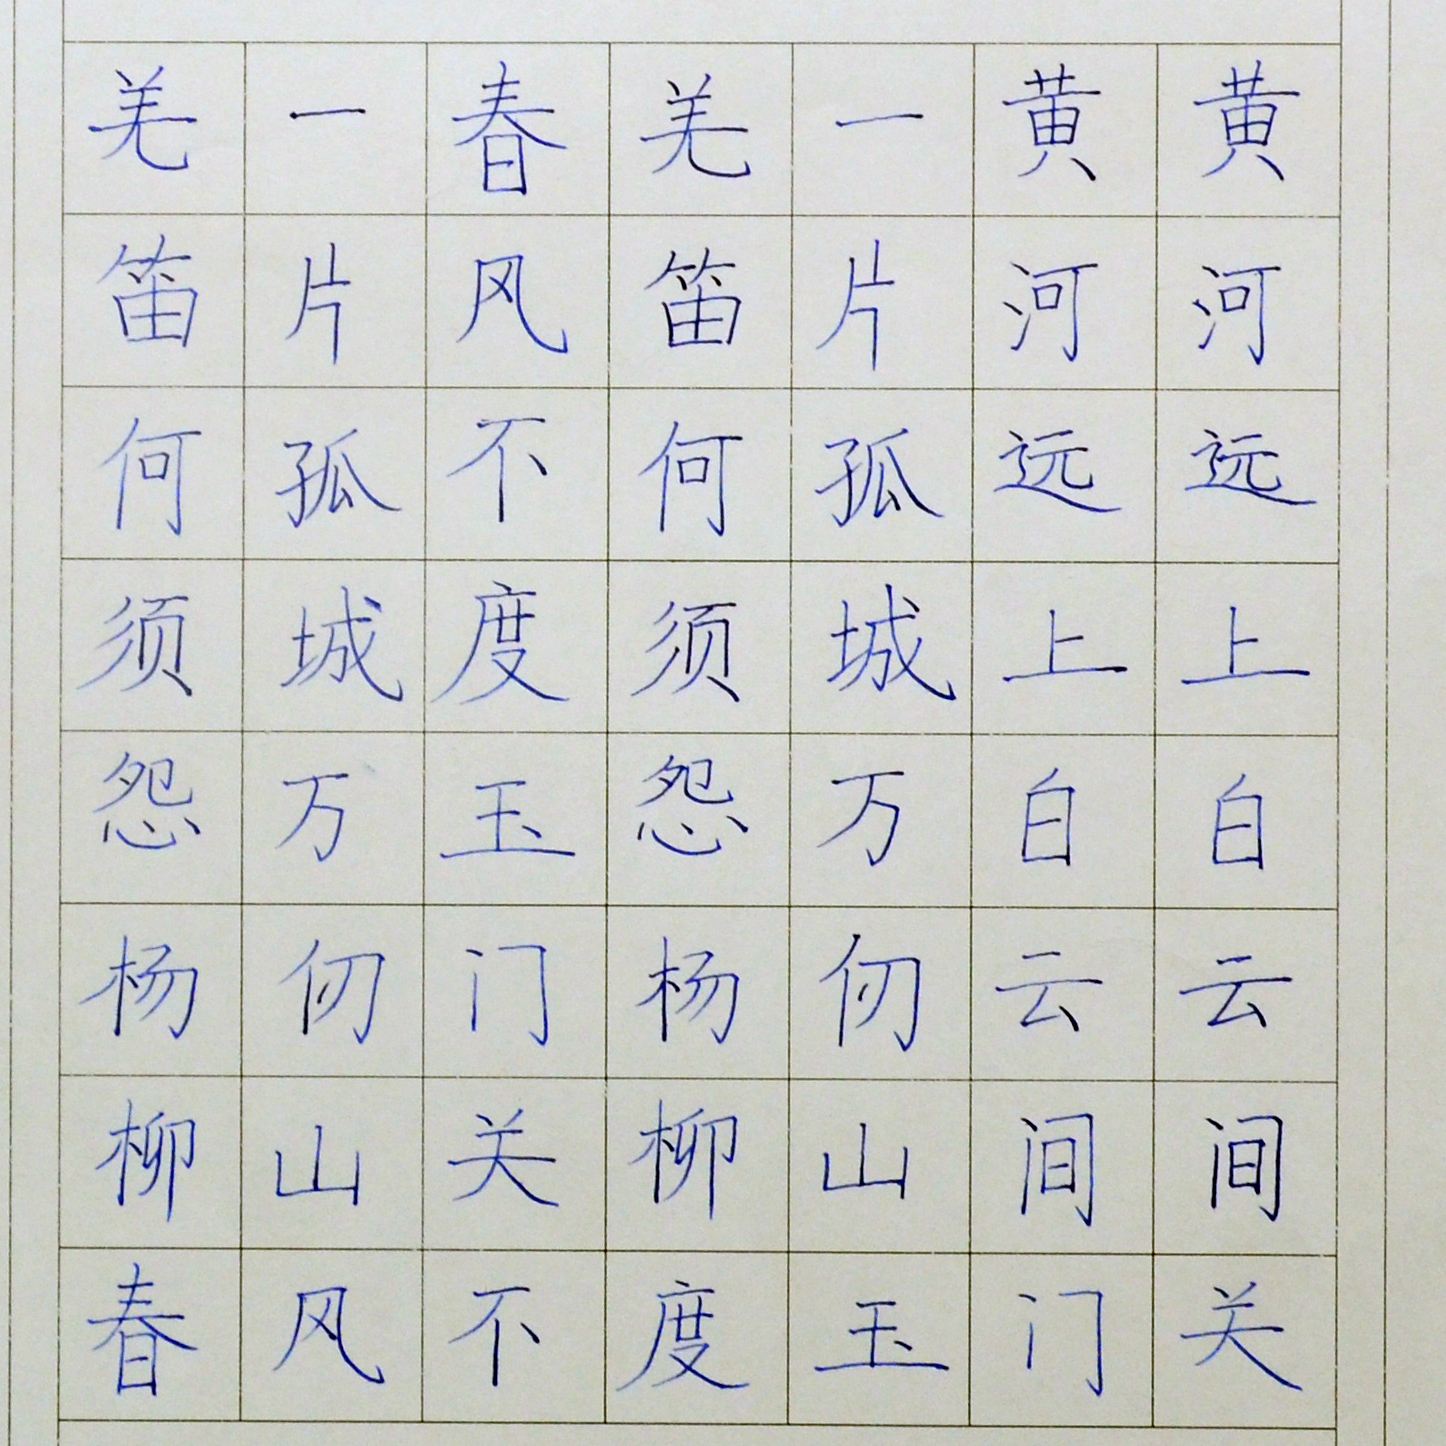 黄河远上白云间
黄河远上白云间
一片孤城万仞山
羌笛何须怨杨柳
春风不度玉门关
一片孤城万仞山
羌笛何须怨杨柳
春风不度玉门关